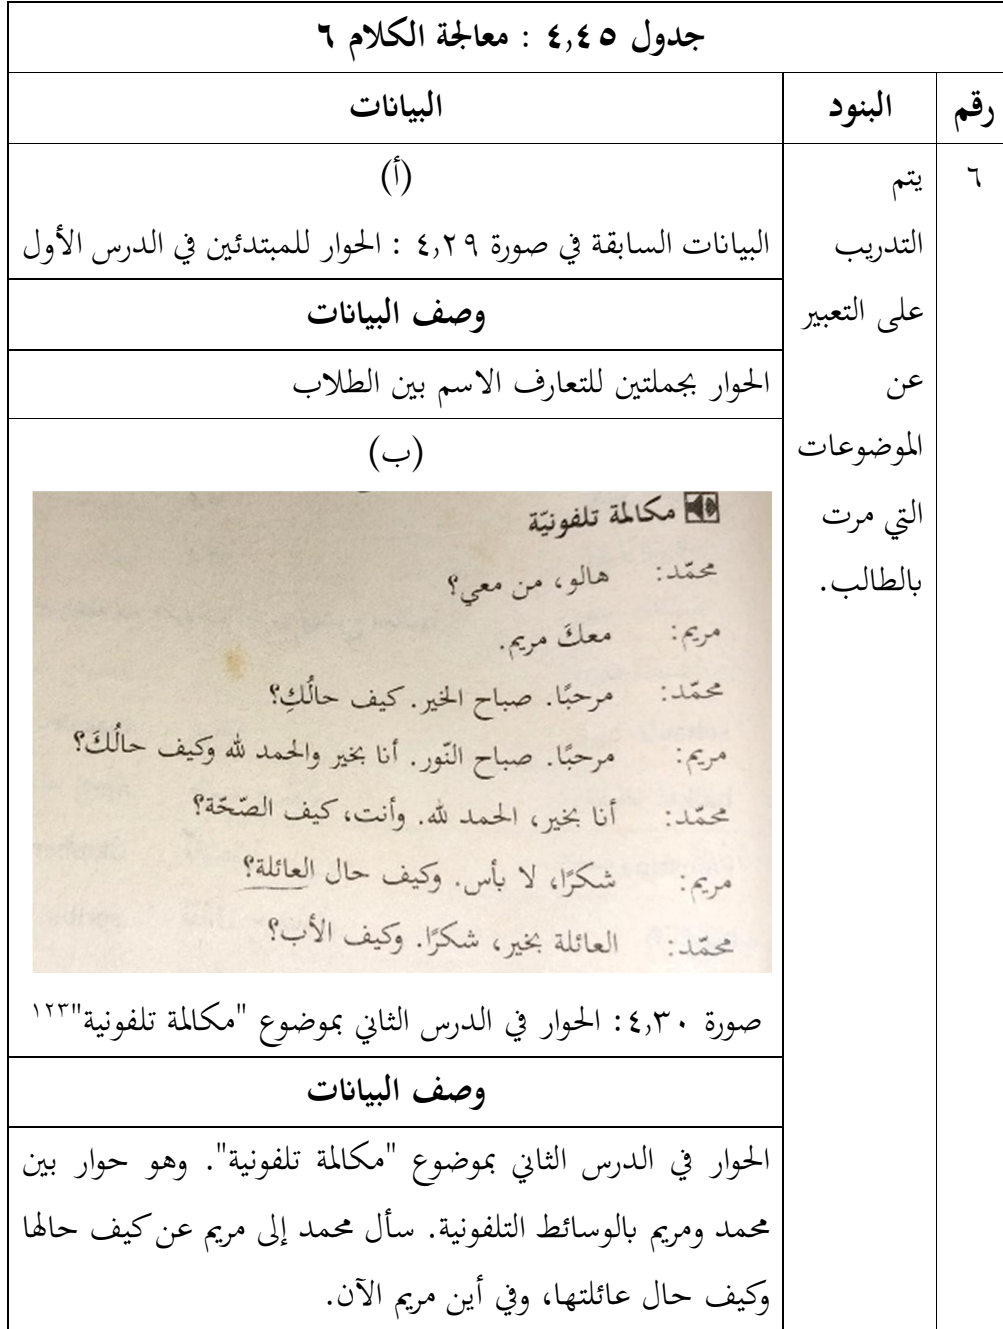 جدول ٤,٤٥ : معالجة الكلام ٦
رقم
البنود
البيانات
٦
يتم
التدريب
على التعبير
عن
الموضوعات
التي مرت
بالطالب.
(أ)
البيانات السابقة في صورة ٤,٢٩ : الحوار للمبتدئين في الدرس الأول
وصف البيانات
الحوار بجملتين للتعارف الاسم بين الطلاب
(ب)
مكالمة تلفونيّة
محمّد: هالو، من معي؟
مريم: معكَ مريم.
محمّد: مرحبًا. صباح الخير. كيف حالُكِ؟
مريم: مرحبًا. صباح النّور. أنا بخير والحمد لله وكيف حالُكَ؟
محمّد: أنا بخير، الحمد لله. وأنت، كيف الصّحّة؟
مريم: شكرًا، لا بأس. وكيف حال العائلة؟
محمّد: العائلة بخير، شكرًا. وكيف الأب؟
صورة ٤,٣٠: الحوار في الدرس الثاني بموضوع "مكالمة تلفونية"١٢٣
وصف البيانات
الحوار في الدرس الثاني بموضوع "مكالمة تلفونية". وهو حوار بين
محمد ومريم بالوسائط التلفونية. سأل محمد إلى مريم عن كيف حالها
وكيف حال عائلتها، وفي أين مريم الآن.